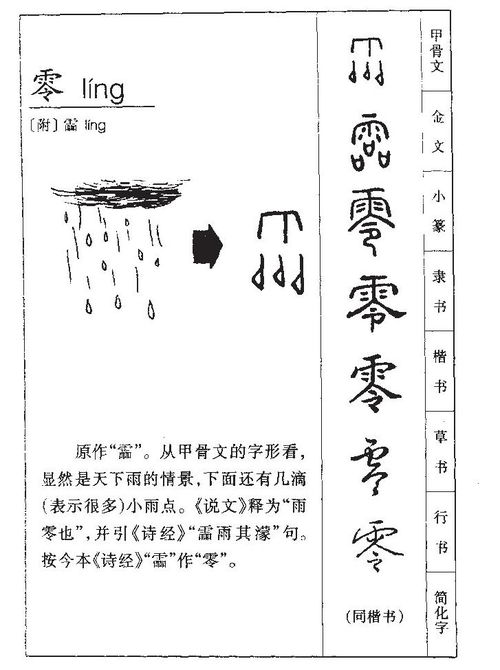 零 líng
〔附〕霝 líng
原作“霝”。从甲骨文的字形看，
显然是天下雨的情景，下面还有几滴
（表示很多）小雨点。《说文》释为“雨
零也”，并引《诗经》“霝雨其濛”句。
按今本《诗经》“霝”作“零”。
霝
零
零
零
零
零
（同楷书）
甲骨文
金文
小篆
隶书
楷书
草书
行书
简化字